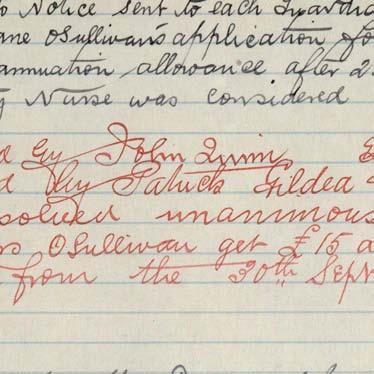 Notice sent to each Guardian
ane OSullivan's application fo
annuation allowance after 2
Nurse was considered
d by John Quinn
d by Patrick Gildea
solved unanimous
rs OSullivan get £15 a
from the 30th Sept